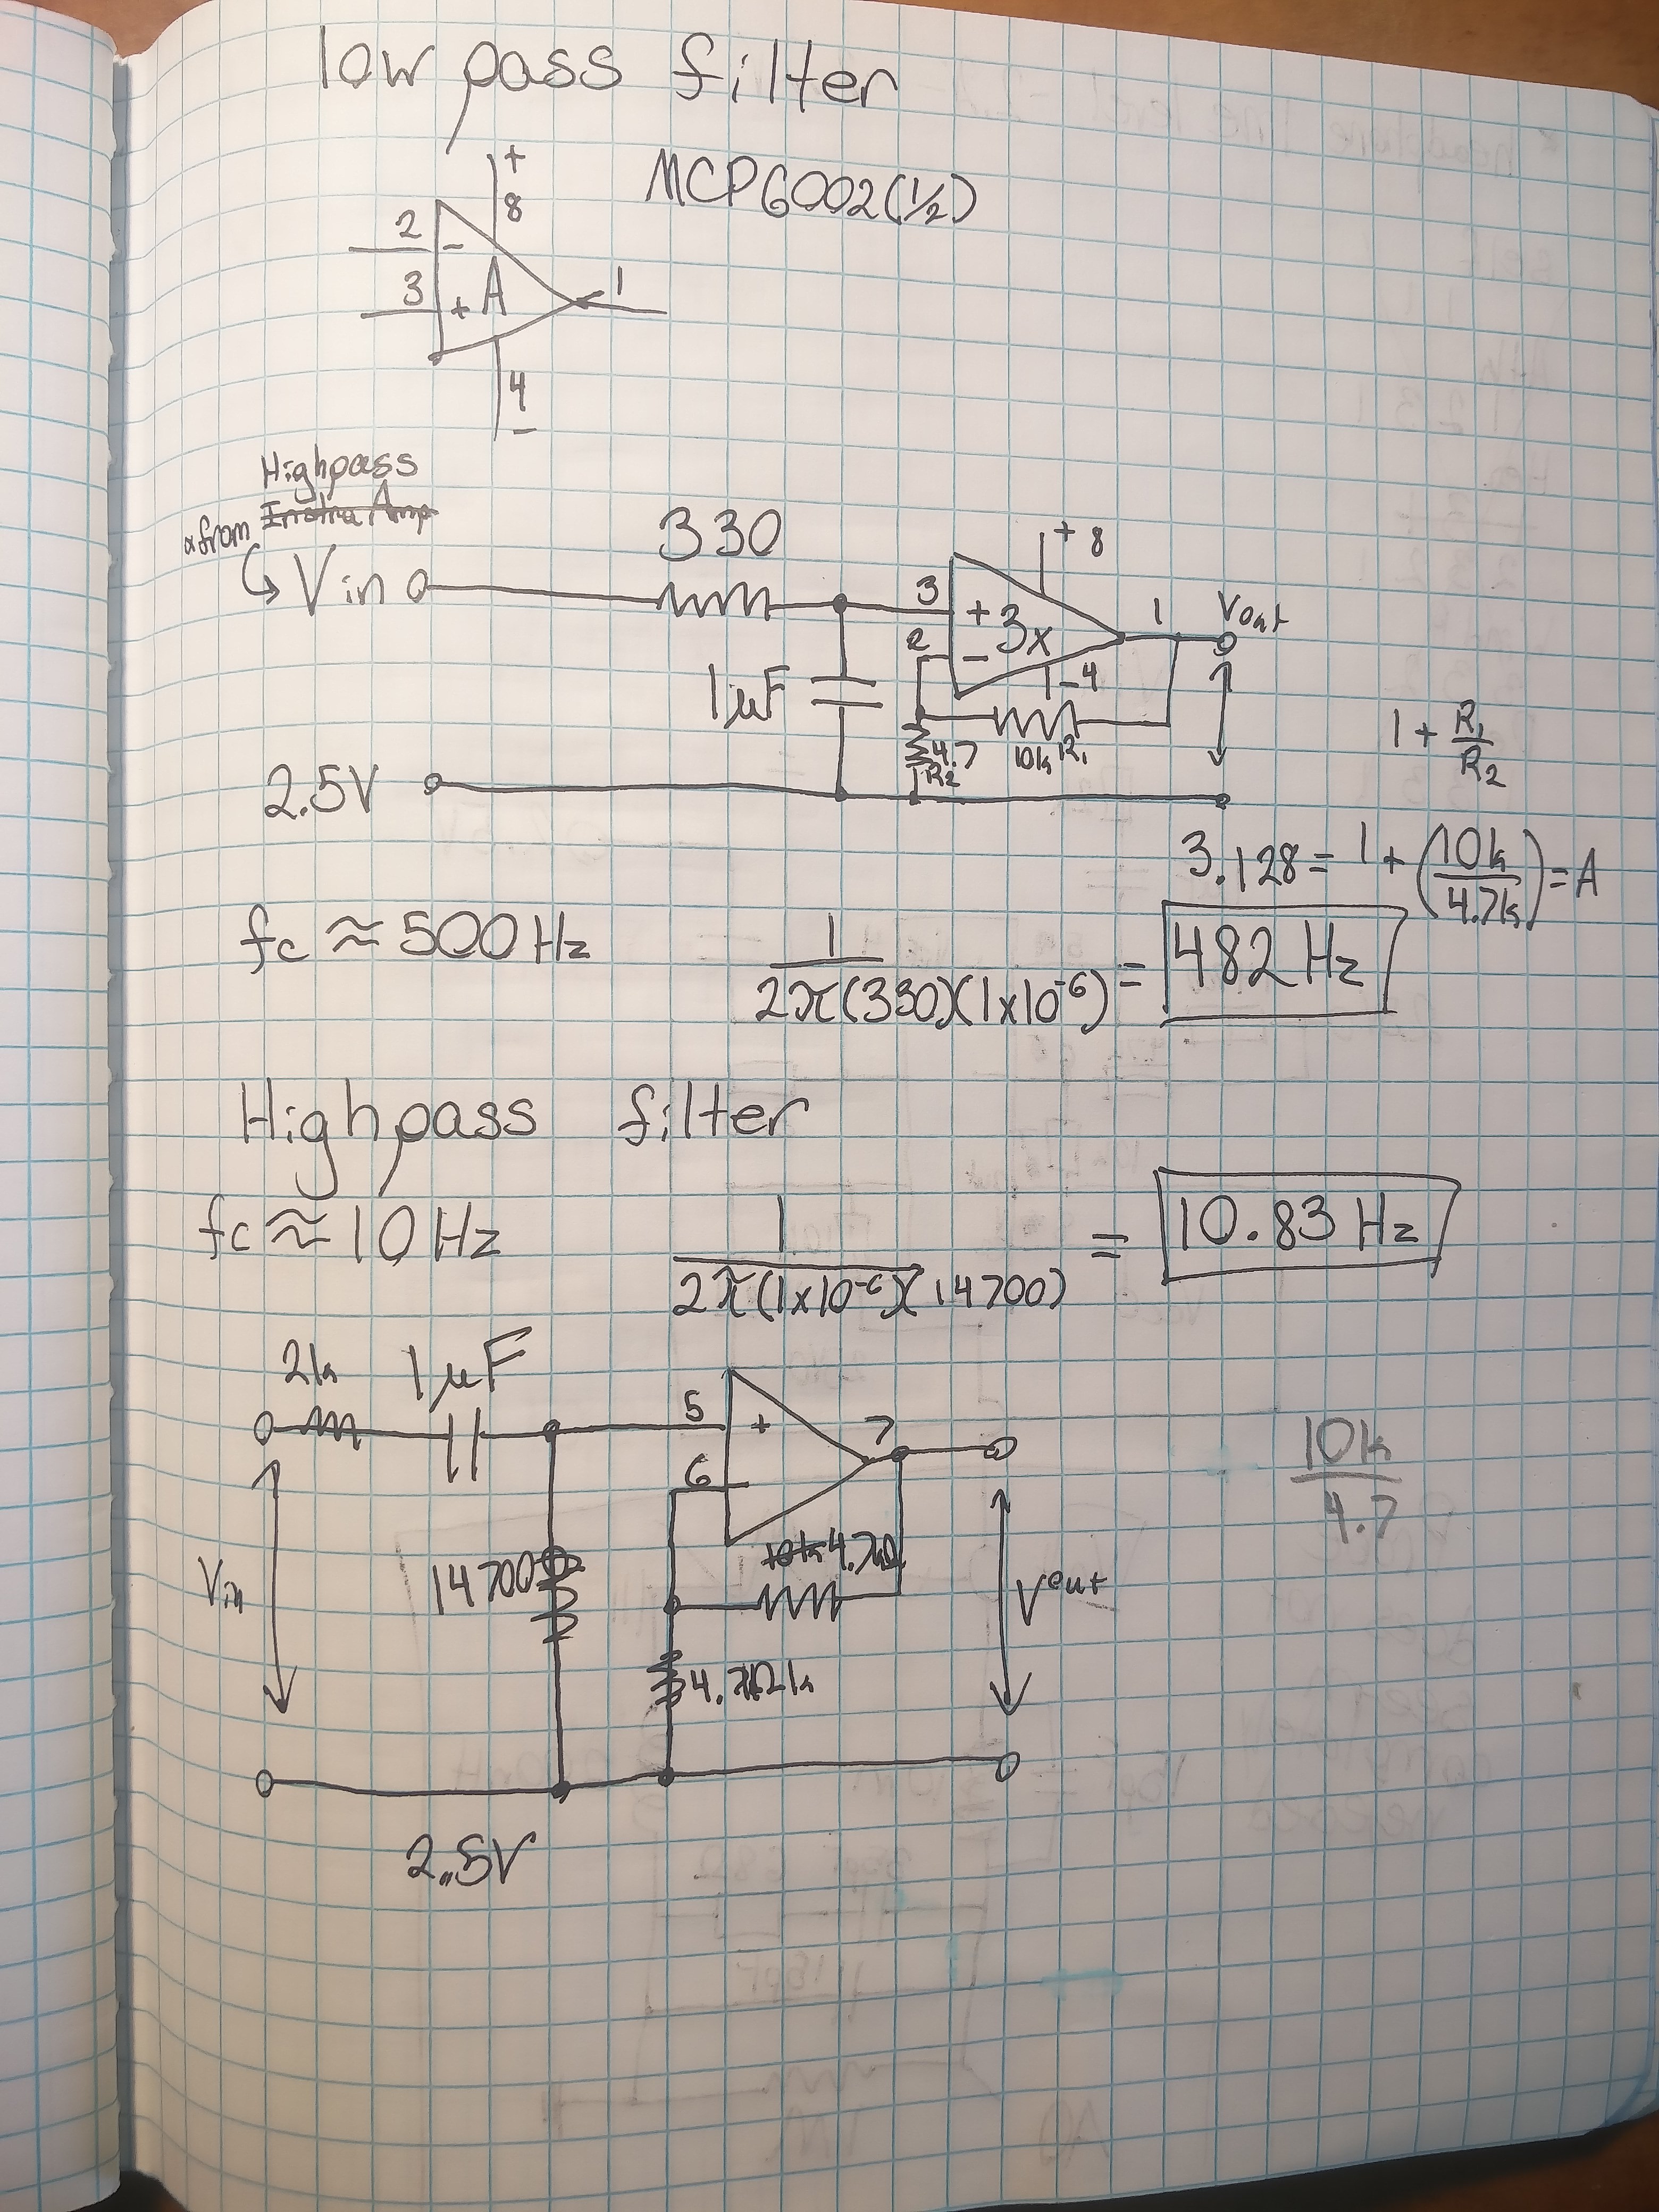 low pass filter
MCP6002(½)
+
8
2 -
3 + A 1
4
-
Highpass
*from Instra Amp
Vin
330
+ 8
3 + 3x 1 Vout
2 -
-4
1µF
4.7 R2
10k R1
2.5V
1 + R1/R2
3.128 = 1 + (10k/4.7k) = A
fc ≈ 500 Hz
1/2π(330)(1x10⁻⁶) = 482 Hz
Highpass filter
fc ≈ 10 Hz
1/2π(1x10⁻⁶)(14700) = 10.83 Hz
2k 1µF
5 + 7
6 -
10k 4.7kΩ
14700
Vin
Vout
2k
10k/4.7
2.5V